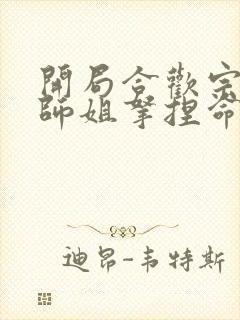 開局合歡宗
師姐拏捏命
迪昂-韦特斯